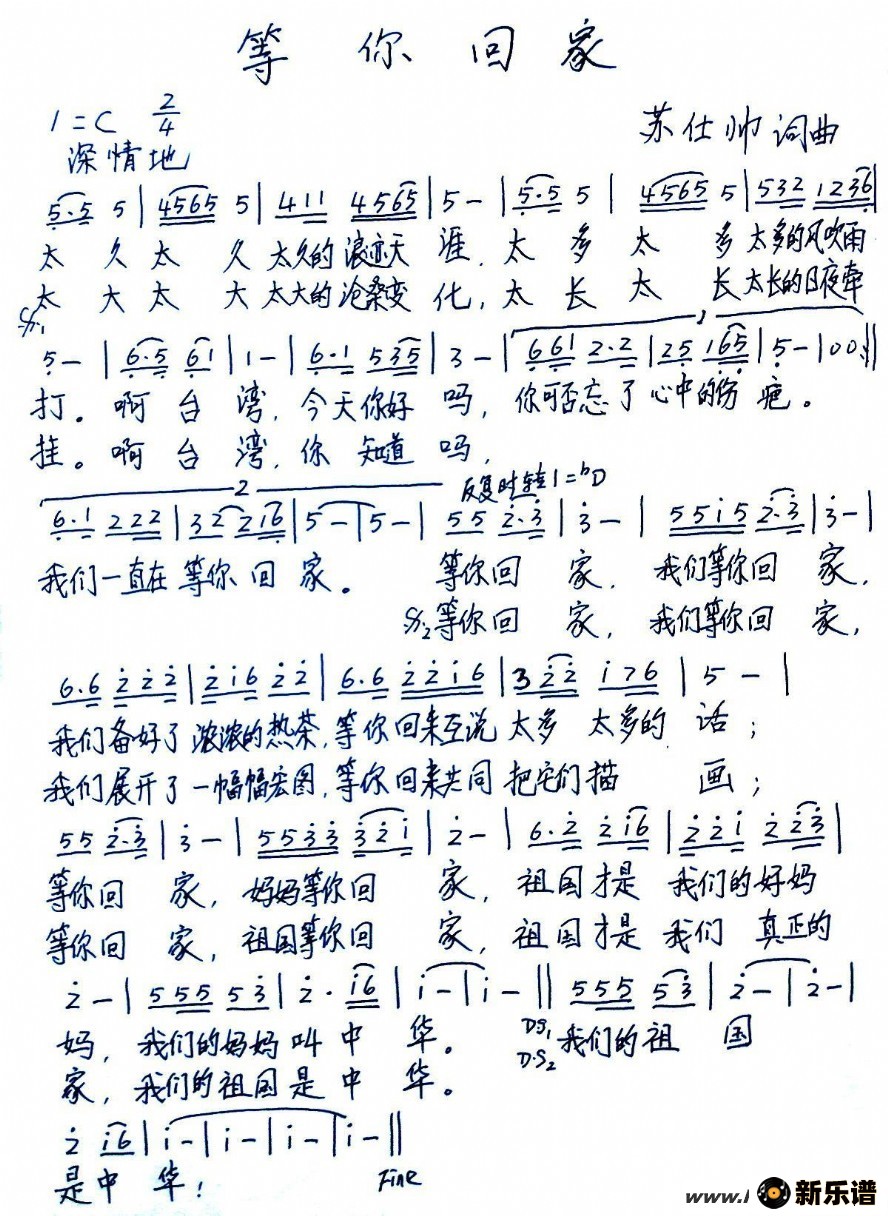 等 你 回 家
1=C 2/4
苏仕帅 词曲
深情地
5·5 5 | 4565 5 | 411 4565 | 5 - | 5·5 5 | 4565 5 | 532 1236 |
太 久 太 久 太久的浪迹天 涯, 太 多 太 多 太多的风吹雨
太 大 太 大 太大的沧桑变 化, 太 长 太 长 太长的日夜牵
5 - | 6·5 61 | 1 - | 6·1 535 | 3 - | 661 2·2 | 25 165 | 5 - | 00 :||
打。啊 台 湾, 今天你好 吗, 你可否忘了心中的伤 疤。
挂。啊 台 湾, 你 知道 吗,
2
反复时转1=bD
6·1 222 | 32 216 | 5 - | 5 - | 55 2·3 | 3 - | 5515 2·3 | 3 - |
我们一直在等你回 家。 等你回 家, 我们等你回 家,
等你回 家, 我们等你回 家,
6·6 222 | 216 22 | 6·6 2216 | 322 176 | 5 - |
我们备好了浓浓的热茶,等你回来互说太多 太多的 话;
我们展开了一幅幅宏图,等你回来共同把它们描 画;
55 2·3 | 3 - | 5533 321 | 2 - | 6·2 216 | 221 223 |
等你回 家, 妈妈等你回 家, 祖国才是 我们的好妈
等你回 家, 祖国等你回 家, 祖国才是 我们 真正的
2 - | 555 53 | 2· 16 | 1 - | 1 - || 555 53 | 2 - | 2 - |
妈, 我们的妈妈叫 中 华。 DS1 我们的祖 国
家, 我们的祖国是 中 华。 D·S2
2 16 | 1 - | 1 - | 1 - | 1 - ||
是中 华! Fine
www.
新乐谱